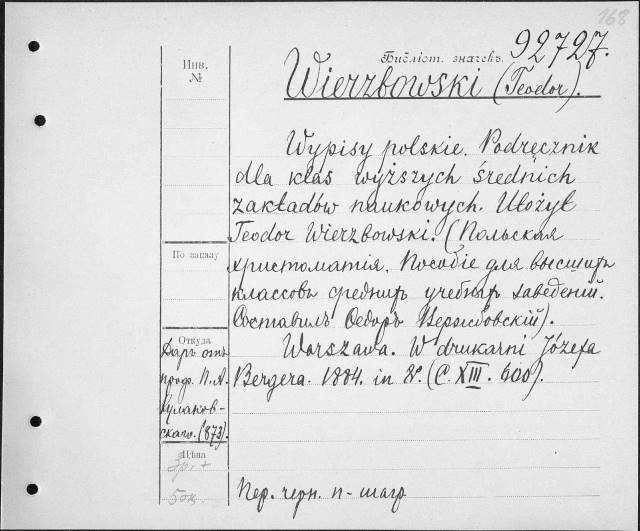 168
Библіот. значекъ. 92727.
Инв.
№
Wierzbowski (Teodor).
Wypisy polskie. Podręcznik
dla klas wyższych średnich
zakładów naukowych. Ułożył
Teodor Wierzbowski. (Польская
По заказу
христоматія. Пособіе для высшихъ
классовъ среднихъ учебныхъ заведеній.
Составилъ Ѳедоръ Вержбовскій).
Откуда
Даръ отъ
проф. П. А.
Кулаков-
скаго. (873).
Warszawa. W drukarni Józefa
Bergera. 1884. in 8º. (С. XIII. 600).
Цѣна
3р. +
50к.
Пер. черн. п-шагр.